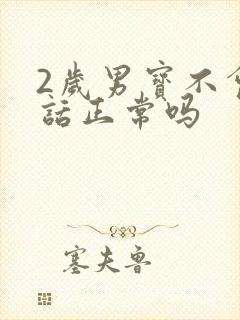 2歲男寶不
話正常嗎
塞夫魯